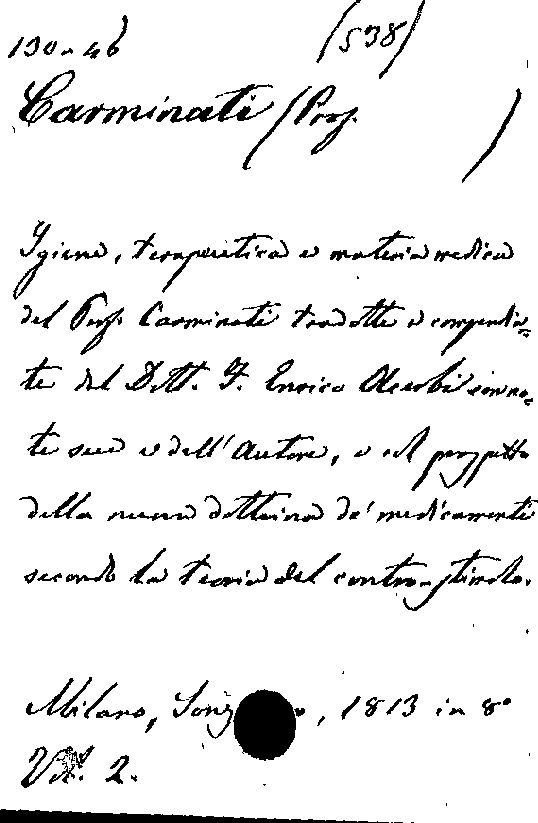 130-46 (538)
Carminati (Prof. )
Igiene, terapeutica e materia medica
del Prof. Carminati tradotte e compendia=
te del Dott. F. Enrico Acerbi con no=
te sue e dell'Autore, e col prospetto
della nuova dottrina de' medicamenti
secondo la teoria del contro-stimolo.
Milano, Sonz o, 1813 in 8º
Vol. 2.